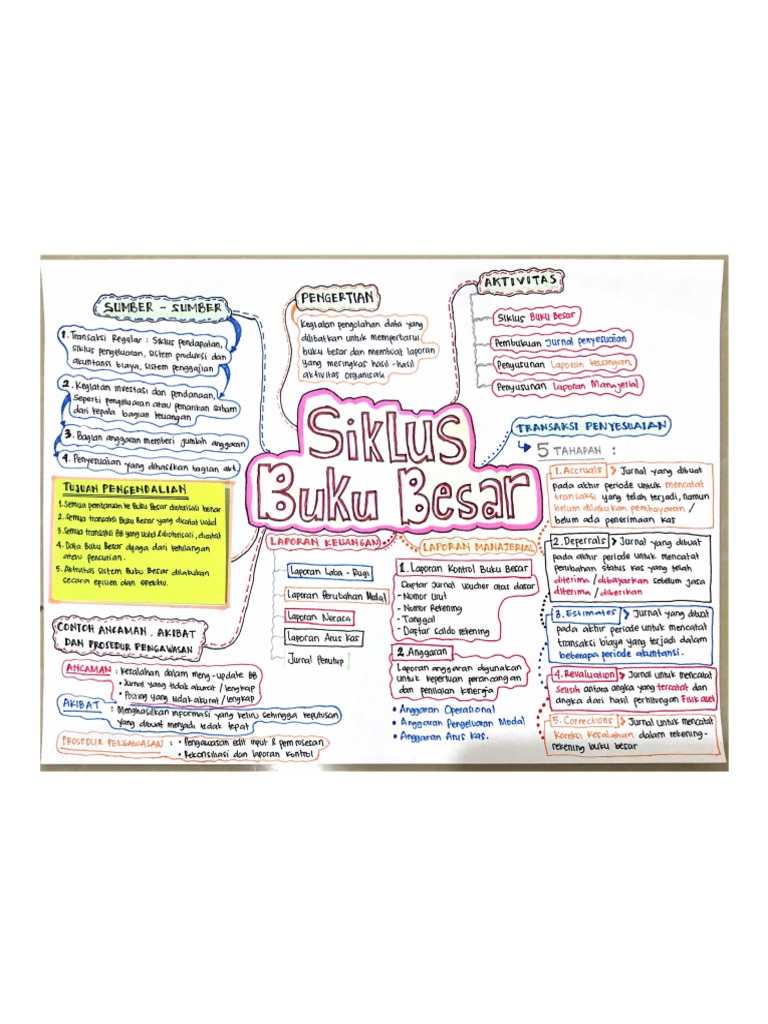 SUMBER - SUMBER
1. Transaksi Regular : Siklus pendapatan,
siklus pengeluaran, sistem produksi dan
akuntansi biaya, sistem penggajian
2. Kegiatan investasi dan pendanaan,
Seperti pengeluaran atau penarikan saham
dari kepala bagian keuangan
3. Bagian anggaran memberi jumlah anggaran
4. Penyesuaian yang dihasilkan bagian akt.
PENGERTIAN
Kegiatan pengolahan data yang
dilibatkan untuk memperbarui
buku besar dan membuat laporan
yang meringkas hasil-hasil
aktivitas organisasi
AKTIVITAS
Siklus Buku Besar
Pembukuan Jurnal penyesuaian
Penyusunan Laporan keuangan
Penyusunan Laporan Manajerial
SIKLUS
BUKU BESAR
TUJUAN PENGENDALIAN
1. Semua pembaruan ke Buku Besar diotorisasi benar
2. Semua transaksi Buku Besar yang dicatat valid
3. Semua transaksi BB yang valid & diotorisasi, dicatat
4. Data Buku Besar dijaga dari kehilangan
atau pencurian.
5. Aktivitas sistem Buku Besar dilakukan
secara efisien dan efektif.
CONTOH ANCAMAN, AKIBAT
DAN PROSEDUR PENGAWASAN
ANCAMAN : • Kesalahan dalam meng-update BB
• Jurnal yang tidak akurat / lengkap
• Posting yang tidak akurat / lengkap
AKIBAT : Menghasilkan informasi yang keliru sehingga keputusan
yang dibuat menjadi tidak tepat
PROSEDUR PENGAWASAN : • Pengawasan edit input & pemrosesan
• Rekonsiliasi dan laporan kontrol
LAPORAN KEUANGAN
Laporan Laba - Rugi
Laporan Perubahan Modal
Laporan Neraca
Laporan Arus Kas
Jurnal Penutup
LAPORAN MANAJERIAL
1. Laporan Kontrol Buku Besar
Daftar Jurnal Voucher atas dasar
- Nomor Urut
- Nomor Rekening
- Tanggal
- Daftar Saldo rekening
2. Anggaran
Laporan anggaran digunakan
untuk keperluan perancangan
dan penilaian kinerja
• Anggaran Operasional
• Anggaran Pengeluaran Modal
• Anggaran Arus Kas.
TRANSAKSI PENYESUAIAN
5 TAHAPAN :
1. Accruals > Jurnal yang dibuat
pada akhir periode untuk mencatat
transaksi yang telah terjadi, namun
belum dilakukan pembayaran /
belum ada penerimaan kas
2. Deferrals > Jurnal yang dibuat
pada akhir periode untuk mencatat
perubahan status kas yang telah
diterima / dibayarkan sebelum jasa
diterima / diberikan
3. Estimates > Jurnal yang dibuat
pada akhir periode untuk mencatat
transaksi biaya yang terjadi dalam
beberapa periode akuntansi.
4. Revaluation > Jurnal untuk mencatat
selisih antara angka yang tercatat dan
angka dari hasil perhitungan Fisik aset
5. Corrections > Jurnal untuk mencatat
Koreksi kesalahan dalam rekening-
rekening buku besar